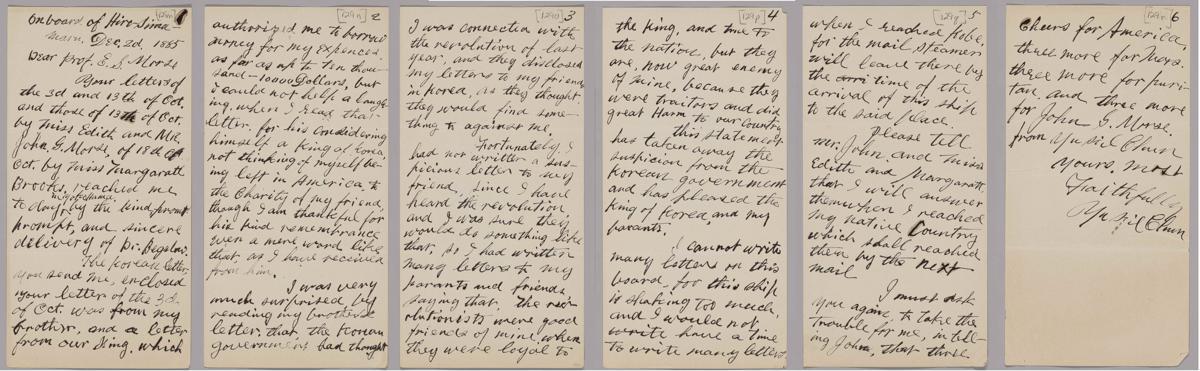 [129n] 1
On board of Hiro-Sima-
Maru. Dec. 2d, 1885
Dear Prof. E. S. Morse
Your letters of
the 3d and 13th of Oct.
and those of 13th of Oct.
by Miss Edith and Mr.
John G. Morse, of 18th of
Oct. by Miss Margarath
Brooks, reached me
to day, by the kind
prompt, and sincere
delivery of Dr. Bigelow.
The Korean letter,
you send me, enclosed
your letter of the 3d.
of Oct. was from my
brother, and a letter
from our King, which
[129n] 2
authorized me to borrow
money for my expences
as far as up to ten thou-
sand—10000 Dollars, but
I could not help a laugh-
ing, when I read that
letter, for his considering
himself a King of Corea,
not thinking of myself be-
ing left in America, to
the Charity of my friend,
though I am thankful for
his kind remembrance
even a mere word like
that, as I have received
from him.
I was very
much surprised by
reading my brothers
letter, that the Korean
government had thought
[129o] 3
I was connected with
the revolution of last
year, and they disclosed
my letters to my friends
in Korea, as they thought
they would find some-
thing to against me.
Fortunately I
had not written a sus-
picious letter to my
friend, since I have
heard the revolution,
and I was sure they
would do something like
that, so I had written
many letters to my
parants and friends
saying that, the rev-
olutionists were good
friends of mine when
they were loyal to
[129p] 4
the King, and true to
the nation, but they
are, now great enemy
of mine, because they
were traitors and did
great Harm to our Country
this statement
has taken away the
suspicion from the
Korean government
and has pleased the
King of Korea, and my
parants.
I cannot write
many letters on this
board, for this ship
is shaking too much,
and I would not
write have a time
to write many letters
[129q] 5
when I reached Kobe,
for the mail steamers
will leave there by
the time of the
arrival of this ship
to the said place.
Please tell
Mr. John, and Miss
Edith and Margarath
that I will answer
them when I reached
my native Country
which shall reached
them by the next
mail
I must ask
you again, to take the
trouble for me, in tell-
ing John, that three
[129r] 6
Cheers for America,
three more for Mrs.
three more for puri-
tan, and three more
for John G. Morse.
from Yu Kil Chun
Yours. most
Faithfully
Yu Kil Chun